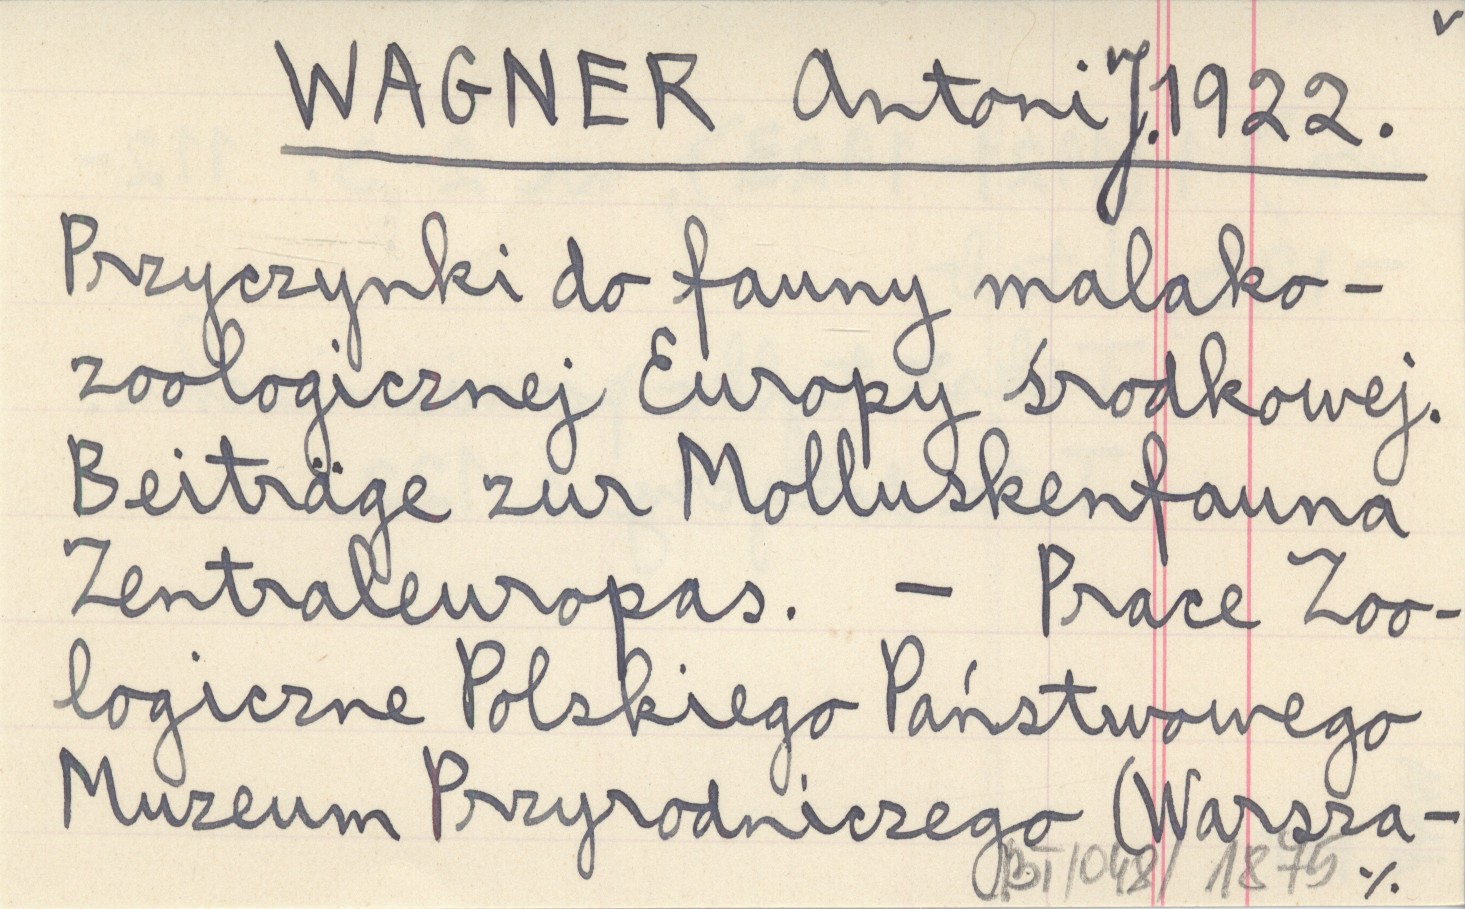 WAGNER Antoni J. 1922.
Przyczynki do fauny malako-
zoologicznej Europy środkowej.
Beiträge zur Molluskenfauna
Zentraleuropas. - Prace Zoo-
logiczne Polskiego Państwowego
Muzeum Przyrodniczego (Warsza-
BI/048/ 1875 ·/.